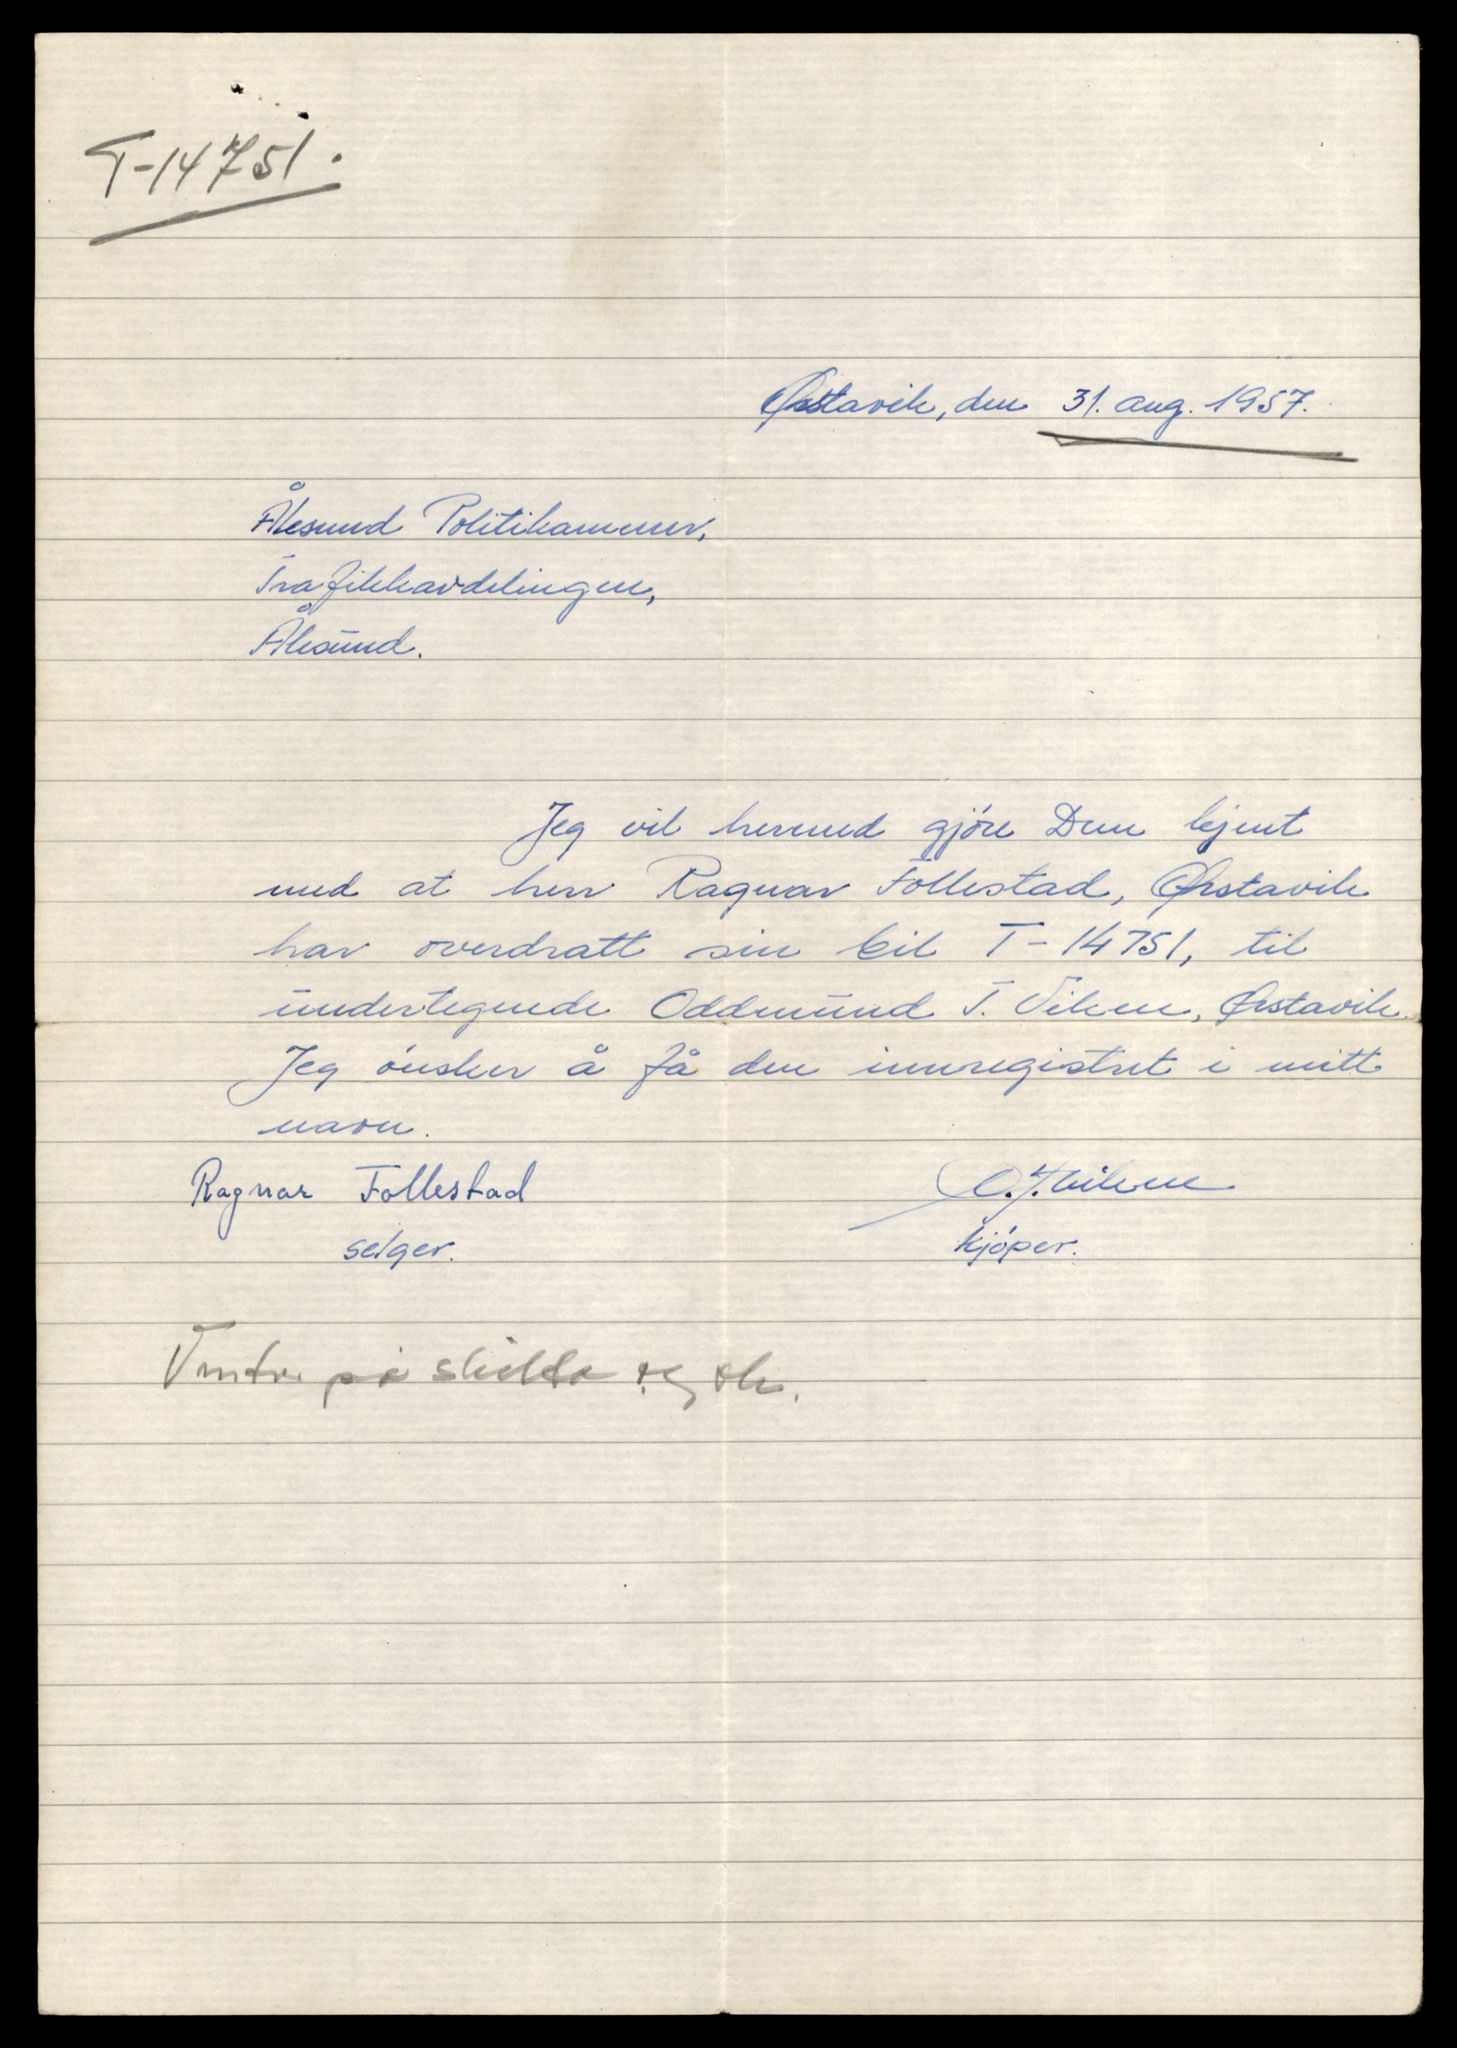 T-14751.
Ørstavik, den 31. aug. 1957.
Ålesund Politikammer,
Trafikkavdelingen,
Ålesund.
Jeg vil hermed gjöre Dem kjent
med at herr Ragnar Follestad, Ørstavik
har overdratt sin bil T-14751, til
undertegnede Oddmund T. Vikene, Ørstavik.
Jeg önsker å få den innregistret i mitt
navn.
Ragnar Follestad
O. T. Vikene
selger.
kjöper.
på skilta